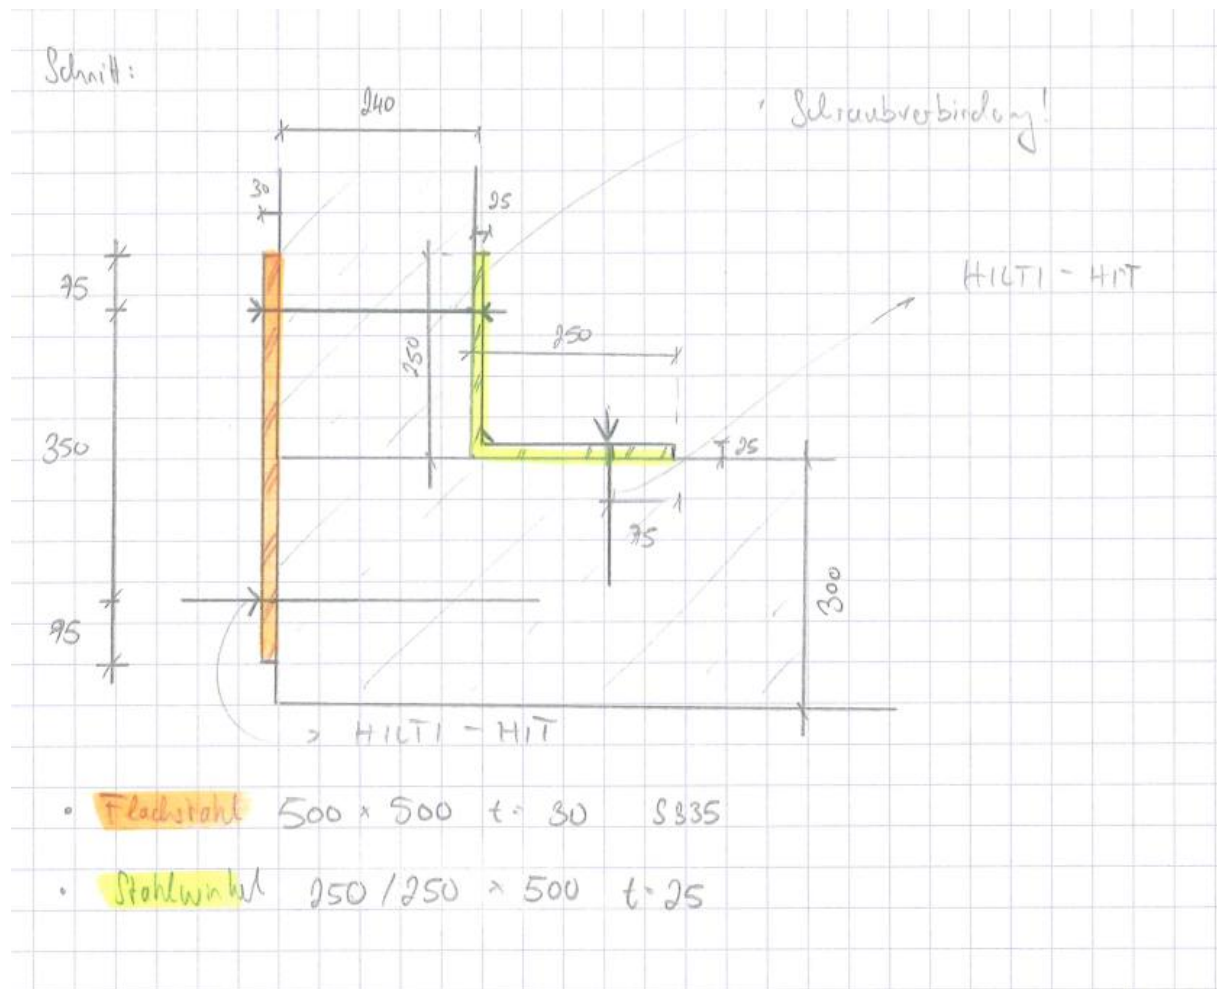 Schnitt:
240
Schraubverbindung!
30
25
75
HILTI - HIT
250
250
350
25
75
300
75
HILTI - HIT
Flachstahl 500 x 500 t= 30 S235
Stahlwinkel 250/250 x 500 t= 25